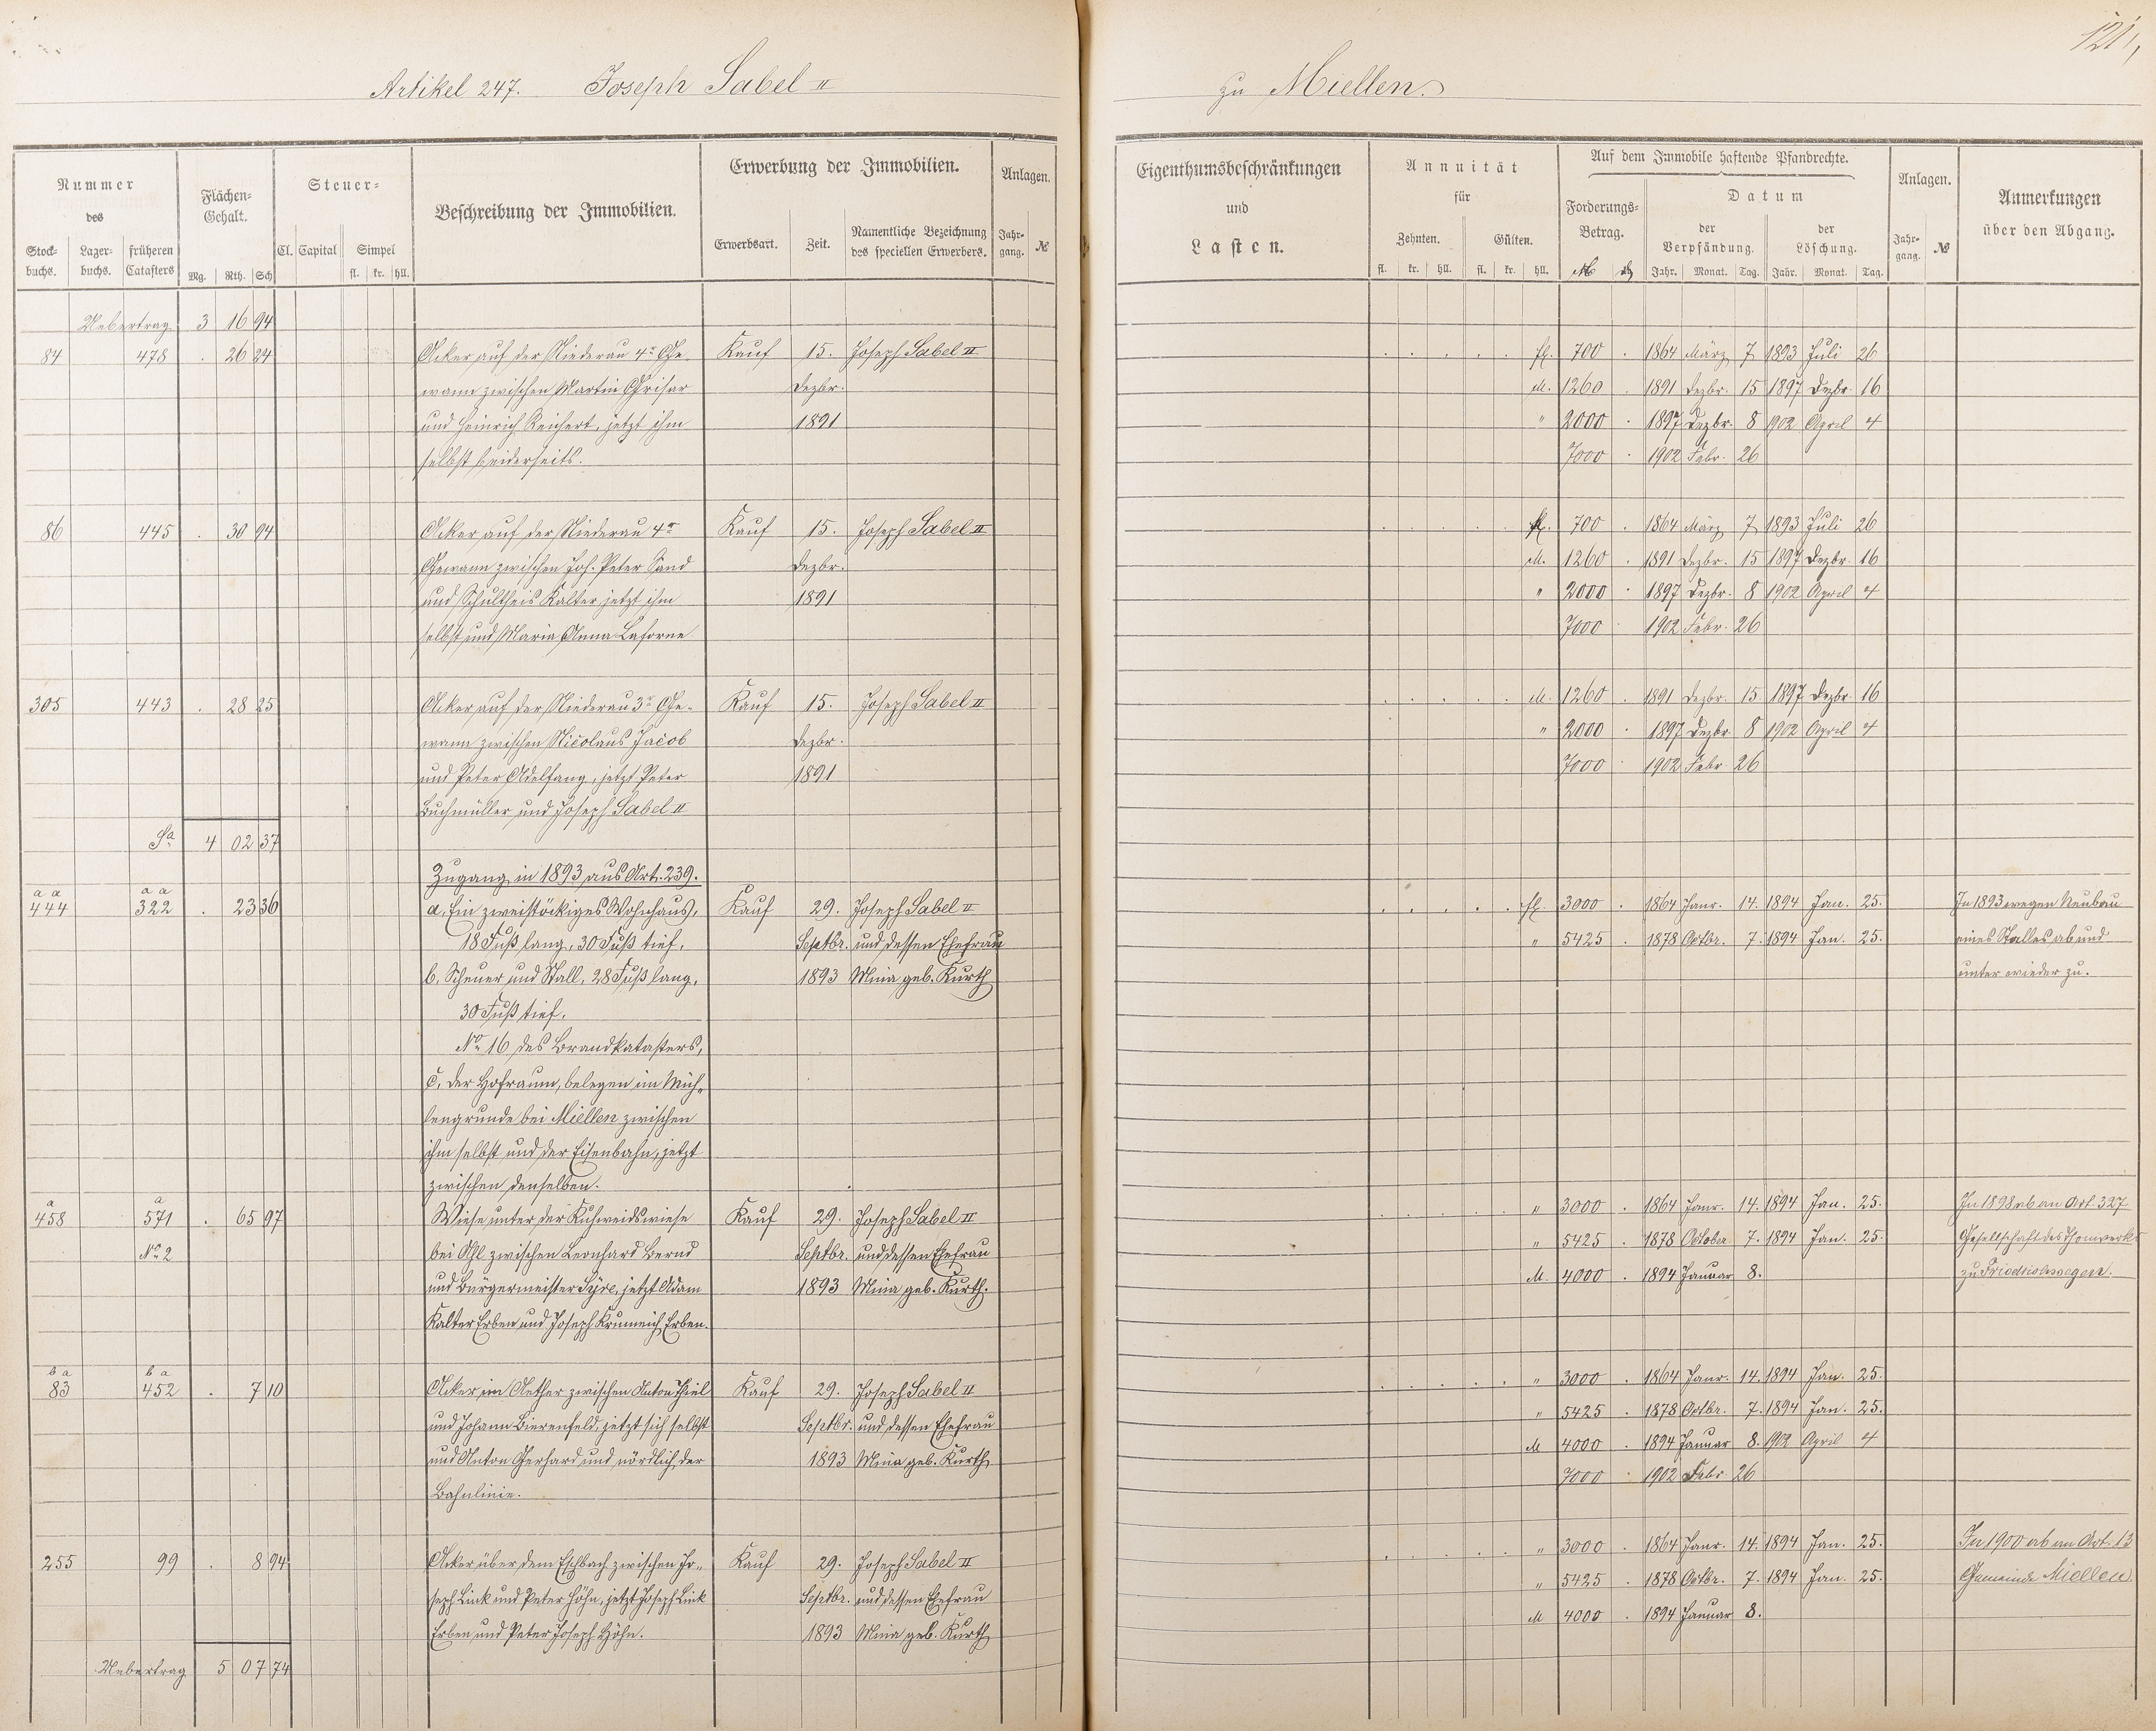 121,
Artikel 247. Joseph Sabel II
zu Miellen.
Nummer
des
Stock-
buchs.
Lager-
buchs.
früheren
Catasters
Flächen-
Gehalt.
Mg. Rth. Sch
Steuer-
Cl. Capital Simpel
fl. kr. hll.
Beschreibung der Immobilien.
Erwerbung der Immobilien.
Erwerbsart. Zeit.
Namentliche Bezeichnung
des speciellen Erwerbers.
Anlagen.
Jahr-
gang. №
Uebertrag 3 16 94
84 478 . 26 24 Acker auf der Niederau 4r Ge- Kauf 15. Joseph Sabel II
wann zwischen Martin Grisar Dezbr.
und Heinrich Reichert, jetzt ihm 1891
selbst beiderseits.
86 445 . 30 94 Acker auf der Niederau 4r Kauf 15. Joseph Sabel II
Gewann zwischen Joh. Peter Sand Dezbr.
und Schultheis Kalter jetzt ihm 1891
selbst und Maria Anna Laforne
305 443 . 28 25 Acker auf der Niederau 3r Ge- Kauf 15. Joseph Sabel II
wann zwischen Nicolaus Jacob Dezbr.
und Peter Adelfang, jetzt Peter 1891
Buchmüller und Joseph Sabel II
Sa 4 02 37
Zugang in 1893 aus Art. 239.
a a a a
444 322 . 23 36 a, Ein zweistöckiges Wohnhaus, Kauf 29. Joseph Sabel II
18 Fuß lang, 30 Fuß tief, Septbr. und dessen Ehefrau
b, Scheuer und Stall, 28 Fuß lang, 1893 Mina geb. Kurth
30 Fuß tief,
No 16 des Brandkatasters,
c, der Hofraum, belegen im Müh-
lengrunde bei Miellen zwischen
ihm selbst und der Eisenbahn, jetzt
zwischen denselben.
a a
458 571 . 65 97 Wiese unter der Kuhweidswiese Kauf 29. Joseph Sabel II
No 2 bei Ahl zwischen Leonhard Bernd Septbr. und dessen Ehefrau
und Bürgermeister Syre, jetzt Adam 1893 Mina geb. Kurth.
Kalter Erben und Joseph Krumeich Erben.
b a b a
83 452 . 7 10 Acker im Aether zwischen Anton Thiel Kauf 29. Joseph Sabel II
und Johann Bierenfeld, jetzt sich selbst Septbr. und dessen Ehefrau
und Anton Gerhard und nördlich der 1893 Mina geb. Kurth
Bahnlinie.
255 99 . 8 94 Acker über dem Eschbach zwischen Jo- Kauf 29. Joseph Sabel II
seph Link und Peter Höhn, jetzt Joseph Link Septbr. und dessen Ehefrau
Erben und Peter Joseph Höhn. 1893 Mina geb. Kurth
Uebertrag 5 07 74
Eigenthumsbeschränkungen
und
Lasten.
Annuität
für
Zehnten. Gülten.
fl. kr. hll. fl. kr. hll.
Auf dem Immobile haftende Pfandrechte.
Forderungs-
Betrag.
M. ₰
Datum
der
Verpfändung.
der
Löschung.
Jahr. Monat. Tag. Jahr. Monat. Tag.
Anlagen.
Jahr-
gang. №
Anmerkungen
über den Abgang.
. . . . . fl. 700 . 1864 März 7 1893 Juli 26
M. 1260 . 1891 Dezbr. 15 1897 Dezbr. 16
" 2000 . 1897 Dezbr. 8 1902 April 4
7000 . 1902 Febr. 26
. . . . . fl. 700 . 1864 März 7 1893 Juli 26
M. 1260 . 1891 Dezbr. 15 1897 Dezbr. 16
" 2000 . 1897 Dezbr. 8 1902 April 4
7000 . 1902 Febr. 26
. . . . . M. 1260 . 1891 Dezbr. 15 1897 Dezbr. 16
" 2000 . 1897 Dezbr. 8 1902 April 4
7000 . 1902 Febr. 26
. . . . . fl. 3000 . 1864 Janr. 14. 1894 Jan. 25. In 1893 wegen Neubau
" 5425 . 1878 Octbr. 7. 1894 Jan. 25. eines Stalles ab und
unter wieder zu.
. . . . . " 3000 . 1864 Janr. 14. 1894 Jan. 25. In 1898 ab an Art 327
" 5425 . 1878 October 7. 1894 Jan. 25. Gesellschaft des Thonwerks
M. 4000 . 1894 Januar 8. zu Friedrichssegen.
. . . . . " 3000 . 1864 Janr. 14. 1894 Jan. 25.
" 5425 . 1878 Octbr. 7. 1894 Jan. 25.
M 4000 . 1894 Januar 8. 1902 April 4
7000 . 1902 Febr 26
. . . . . " 3000 . 1864 Janr. 14. 1894 Jan. 25. In 1900 ab an Art. 13
" 5425 . 1878 Octbr. 7. 1894 Jan. 25. Gemeinde Miellen.
M 4000 . 1894 Januar 8.